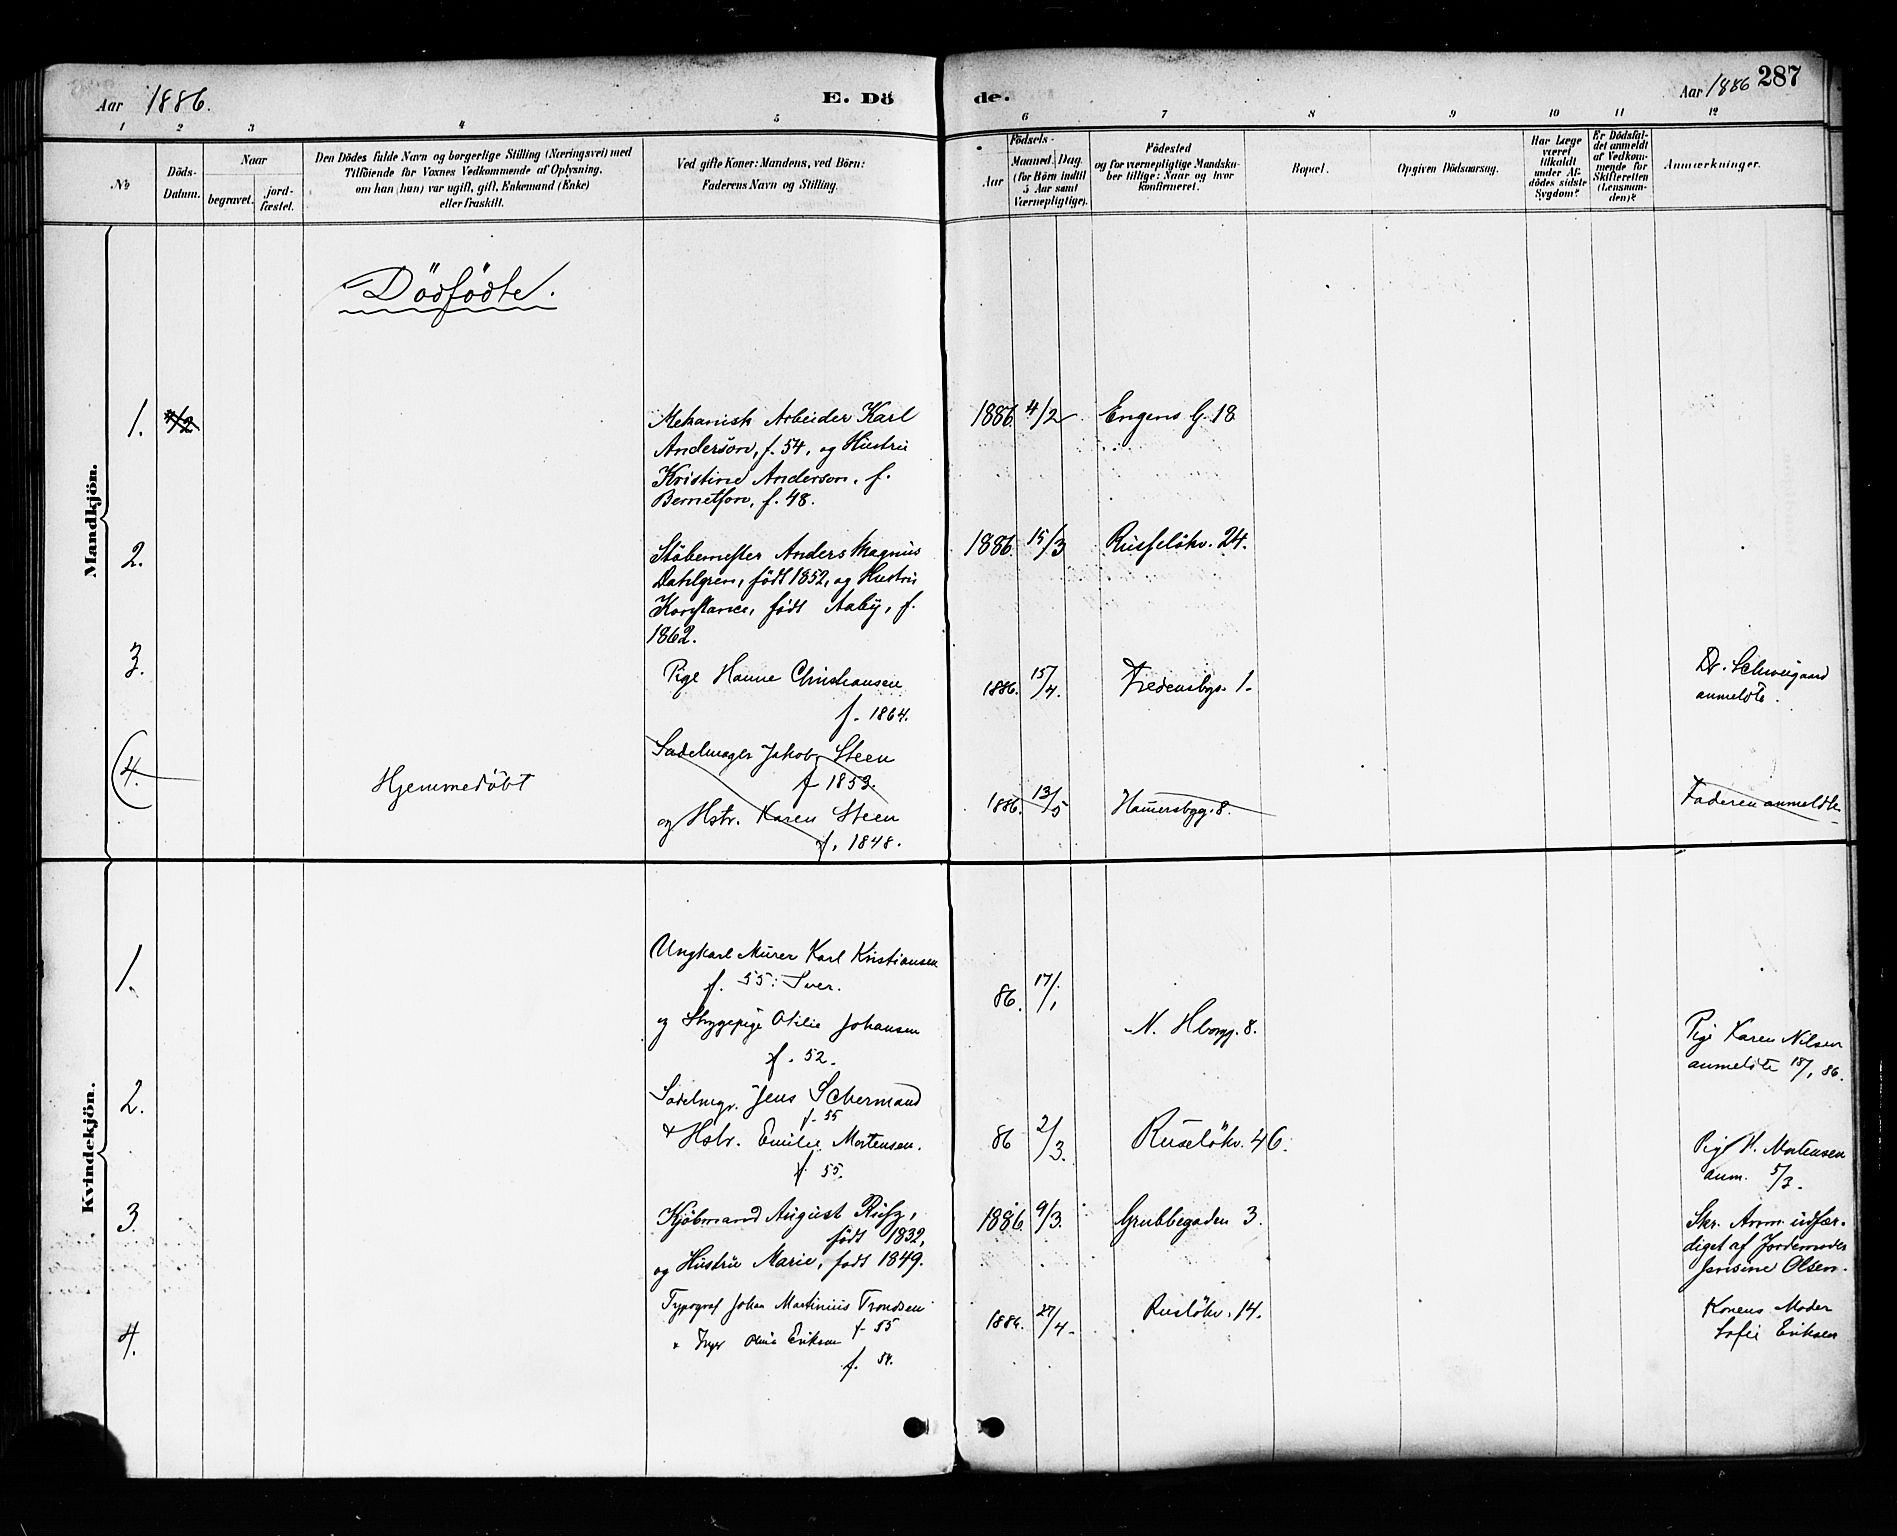 Aar 1886.
E. Dö de.
Aar 1886 287
1 2 3 4 5 6 7 8 9 10 11 12
No
Döds-Datum.
Naar
begravet. jord-fæstet.
Den Dödes fulde Navn og borgerlige Stilling (Næringsvei) med
Tilföiende for Voxnes Vedkommende af Oplysning,
om han (hun) var ugift, gift, Enkemand (Enke)
eller fraskilt.
Ved gifte Koner: Mandens, ved Börn:
Faderens Navn og Stilling.
Födsels-
Aar Maaned. Dag.
(for Börn indtil
5 Aar samt
Værnepligtige).
Födested
og for værnepligtige Mandskaber tillige: Naar og hvor
konfirmeret.
Bopæl.
Opgiven Dödsaarsag.
Har Læge
været
tilkaldt
under Afdödes sidste
Sygdom?
Er Dödsfaldet anmeldt
af Vedkommende for
Skifteretten
(Lensmanden)?
Anmærkninger.
Dödfödte.
Mandkjön.
1. 4/2
Mekanisk Arbeider Karl
Anderson, f. 54, og Hustru
Kristine Anderson, f.
Bernetson, f. 48.
1886. 4/2 Engens G. 18
2.
Stöbemester Anders Magnus
Dahlgren, födt 1852, og Hustru
Konstance, födt Aaby, f.
1862.
1886. 15/3 Russelökv. 24.
3.
Pige Hanne Christiansen
f. 1864.
1886. 15/4. Fredensbgv. 1.
Dr. Schweigaard
anmeldte.
4.
Hjemmedöbt
Sadelmager Jakob Steen
f 1853.
og Hstr. Karen Steen
f. 1848.
1886. 13/5 Hamersbgg. 8.
Faderen anmeldte
Kvindekjön.
1.
Ungkarl Murer Karl Kristiansen
f. 55. Sver.
og Strygepige Otilie Johansen
f. 52.
86. 17/1 N. Hborgg. 8.
Pige Karen Nilsen
anmeldte 18/1 86.
2.
Sadelmgr. Jens Schermand
f. 55
& Hstr. Emilie Mortensen.
f. 55.
86 2/3. Ruselökv. 46.
Pige H. Mortensen
anm. 5/3.
3.
Kjöbmand August
födt 1832,
og Hustru Marie, födt 1849.
1886 9/3. Grubbegaden 3.
Skr. Anm. udfærdiget af Jordemoder
Jensine Olsen.
4.
Typograf Johan Martinius Trondsen
f. 55
Olina Eriksen
f. 54.
1886. 27/4.Ruslökv. 14.
Konens Moder
Sofie Eriksen